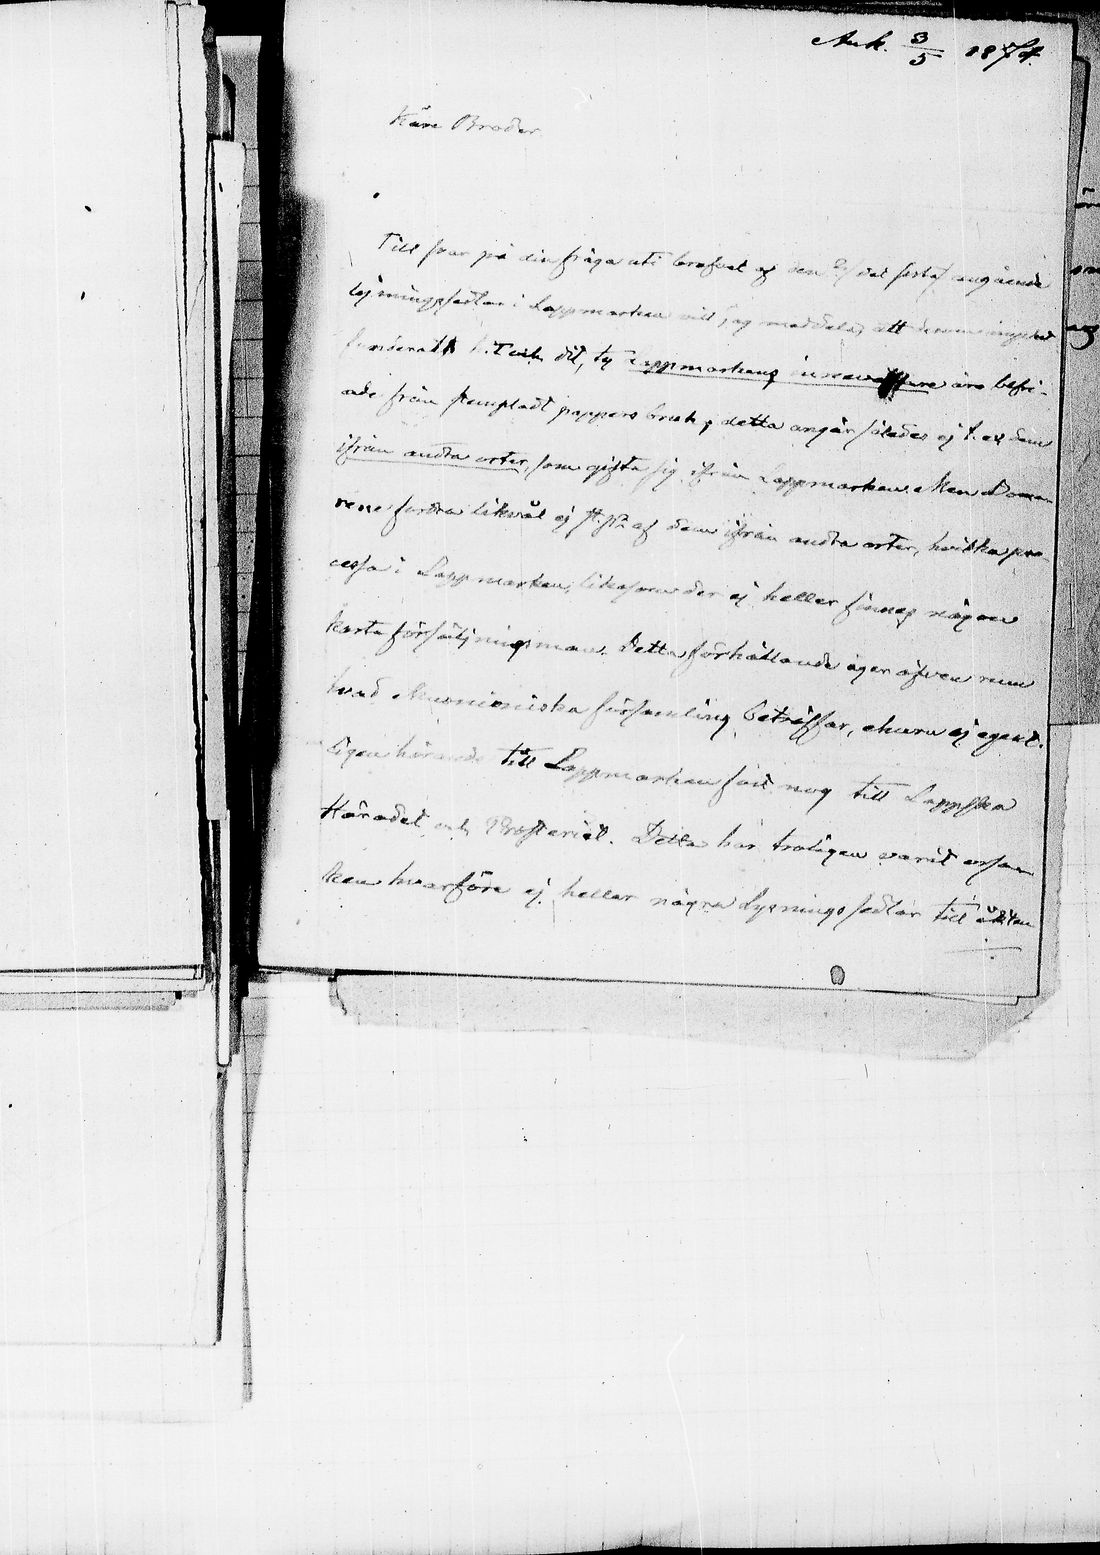 Ank. 3/5 1874.
Käre Broder
Till svar på din fråga uti brefvet af den 2/ dennes angående
lysningssedlar i Lappmarken vill jag meddela, att
dit, ty Lappmarkens innevånare äro befri-
ade från stempladt pappers bruk; detta angår således ej t. ex. dem
ifrån andra orter, som gifta sig ifrån Lappmarken. Men Doma-
rene fordra likväl ej af dem ifrån andra orter, hvilka pro-
cessa i Lappmarken, likasom der ej heller finnes någon
karta försäljningsman. Detta förhållande äger äfven rum
hvad Muonioniska församling beträffar, ehuru ej egent-
ligen hörande till Lappmarken fast nog till Lappska
Häradet och Prosteriet. Detta har troligen varit orsa-
ken hvarföre ej heller några Lysnings sedlar till äkten